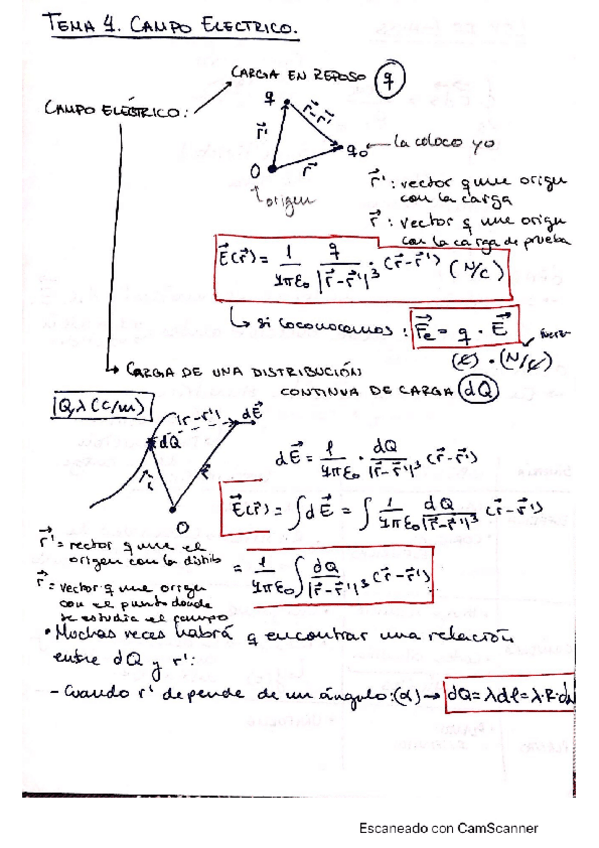 TEMA 4. CAMPO ELECTRICO.
CARGA EN REPOSO (q)
CAMPO ELÉCTRICO:
q
r⃗'
r⃗-r⃗'
q₀ ← la coloco yo
O
r⃗
origen
r⃗': vector q une origen
con la carga
r⃗: vector q une origen
con la carga de prueba
E⃗(r⃗) = 1/4πε₀ · q/|r⃗-r⃗'|³ · (r⃗-r⃗') (N/C)
↳ si conocemos: F⃗e = q · E⃗
(C) · (N/C)
→ CARGA DE UNA DISTRIBUCIÓN
CONTINUA DE CARGA (dQ)
Q, λ (C/m)
|r-r'|
dE⃗
dQ
r⃗
O
dE⃗ = 1/4πε₀ · dQ/|r⃗-r⃗'|³ (r⃗-r⃗')
E⃗(r⃗) = ∫dE⃗ = ∫ 1/4πε₀ dQ/|r⃗-r⃗'|³ (r⃗-r⃗')
= 1/4πε₀ ∫ dQ/|r⃗-r⃗'|³ (r⃗-r⃗')
r⃗' = vector q une el
origen con la distib
r⃗ = vector q une origen
con el punto donde
se estudia el campo
• Muchas veces habrá q encontrar una relación
entre dQ y r':
- Cuando r' depende de un ángulo: (α) → dQ = λdl = λ·R·dα
Escaneado con CamScanner